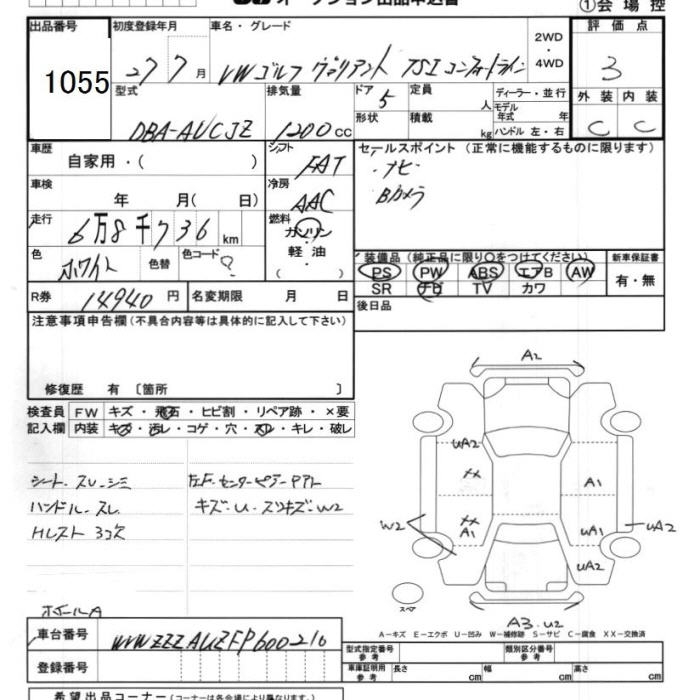 オークション出品申込書 ①会場控
出品番号 初度登録年月 車名・グレード 2WD・4WD 評価点
1055 27 7月 VWゴルフ ヴァリアント TSIコンフォートライン 3
型式 排気量 ドア 5 定員 人 ディーラー・並行 外装 内装
DBA-AUCJZ 1200cc 形状 積載 kg モデル年式 年 ハンドル 左・右 C C
車歴 自家用・( ) シフト FAT セールスポイント(正常に機能するものに限ります)
車検 年 月( 日) 冷房 AAC ・ナビ
Bカメラ
走行 6万8千736km 燃料 ガソリン・軽油・( )
色 ホワイト 色替 色コード ? 装備品(純正品に限り○をつけてください) 新車保証書
PS PW ABS エアB AW 有・無
SR ナビ TV カワ
R券 14940円 名変期限 月 日 後日品
注意事項申告欄(不具合内容等は具体的に記入して下さい)
修復歴 有〔箇所 〕
検査員記入欄 FW キズ・飛石・ヒビ割・リペア跡・×要
内装 キズ・汚レ・コゲ・穴・スレ・キレ・破レ
シート・スレ・シミ
ハンドル・スレ
キズ・U・スリキズ・W2
A2
UA2
XX A1
XX
A1 UA1 UA2
W2
UA2
スペア
A3.U2
A-キズ E-エクボ U-凹み W-補修跡 S-サビ C-腐食 XX-交換済
ホイールA
車台番号 WVWZZZAUZFP600210
登録番号
型式指定番号 参考 類別区分番号 参考
車庫証明用 参考 長さ cm 幅 cm 高さ cm
希望出品コーナー(コーナーは各会場により異なります。)